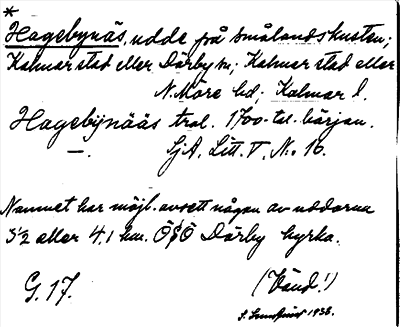 *
Hagebynäs, udde på Smålandskusten;
Kalmar stad eller Dörby sn; Kalmar stad eller
N. Möre hd; Kalmar l.
Hagebÿnääs trol. 1700-tal. början.
—. SjA, Litt. V, No 16.
Namnet har möjl. avsett någon av uddarna
3½ eller 4,1 km. ÖSÖ Dörby kyrka.
G. 17. (Vänd!)
1938.